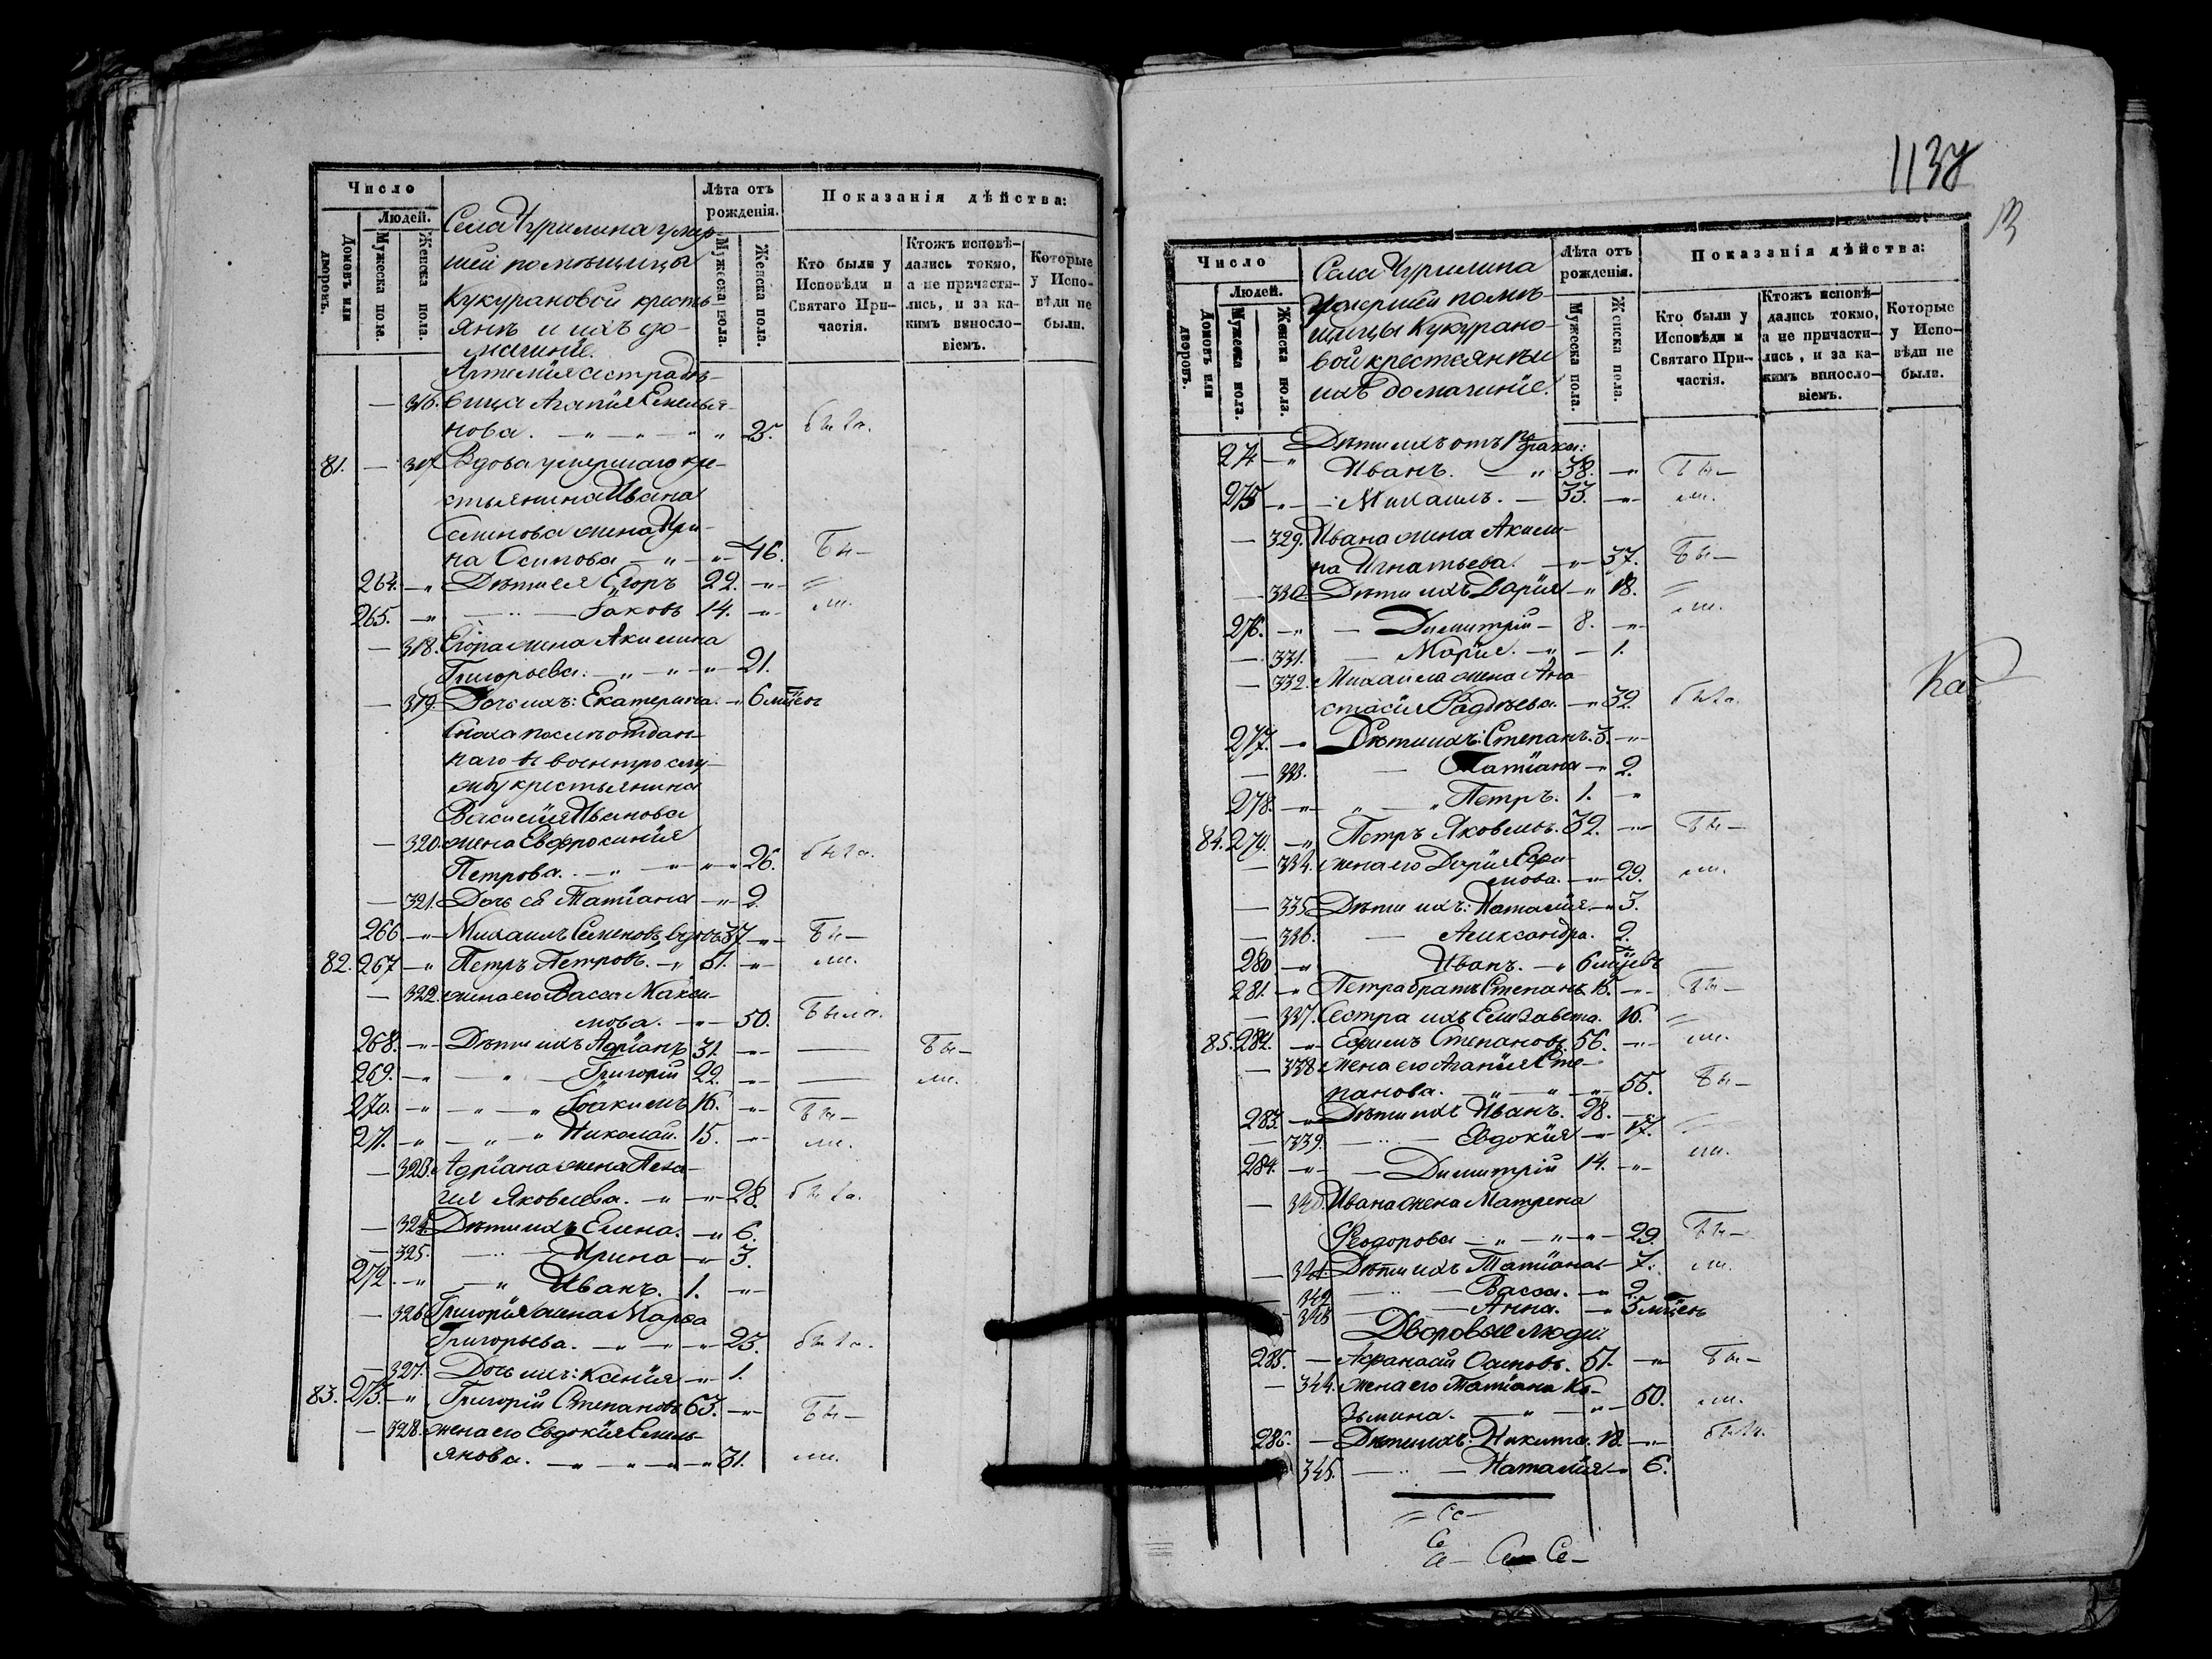 Число
Людей.
Домовъ или дворовъ.
Мужеска пола.
Женска пола.
Села Чурилина умер-
шей помѣщицы
Кукурановой кресть-
янъ и ихъ до-
машніе.
Лѣта отъ рожденія.
Мужеска пола.
Женска пола.
Показанія дѣйства:
Кто были у Исповѣди и Святаго При-частія.
Ктожъ исповѣ-дались токмо, а не причасти-лись, и за ка-кимъ винносло-віемъ.
Которые у Испо-вѣди не были.
Артемія сестра дѣ-
— 316. вица Агапія Емелья-
нова. — " — " — " " 25. была.
81. — 317. Вдова умершаго кре-
стьянина Ивана
Семенова жена Ири-
на Осипова — " — " — 46. Бы—
264. —" Дѣти ея Егоръ 22. —"—
265. —" — " — Іаковъ 14. —"— ли.
— 318. Егора жена Акилина
Григорьева. — " — " —" 21.
— 319. Дочь ихъ: Екатерина. —" 6 мѣсяц
Сноха послѣ отдан-
наго въ военную слу-
жбу крестьянина
Василія Иванова
— 320. жена Евфросинія
Петрова. — " — " —" 26. была.
— 321. Дочь ея Татіана —" 2.
266. —" Михаилъ Семеновъ, вдовъ 37. —"— Бы—
82. 267 —" Петръ Петровъ. —" 51. —"— ли.
— 322. жена его Васса Макси-
мова. —"— 50. Была.
268. —"— Дѣти ихъ Адріанъ 31. —"— — Бы—
269. —" — " — Григорій 22. —"— — ли.
270. —" — " — " Іоакимъ 16. —"— Бы—
271. —" — " — " Николай. 15. —"— ли.
— 323. Адріана жена Пела-
гія Яковлева. —" —" 28. была.
— 324. Дѣти ихъ Елена. —" 6.
— 325. — " — Ирина —" 3.
272. —" — " Иванъ. 1. —"—
— 326. Григорія жена Марѳа
Григорьева. —" —" —" 23. была.
— 327. Дочь ихъ: Ксенія —" 1.
83. 273. —" Григорій Степановъ 63. —"— Бы—
— 328. жена его Евдокія Емель-
янова. —" —" —" —" 31. ли.
1137
Число
Людей.
Домовъ или дворовъ.
Мужеска пола.
Женска пола.
Села Чурилина
умершей помѣ-
щицы Кукурано-
вой крестьянъ и
ихъ домашніе.
Лѣта отъ рожденія.
Мужеска пола.
Женска пола.
Показанія дѣйства:
Кто были у Исповѣди и Святаго При-частія.
Ктожъ исповѣ-дались токмо, а не причасти-лись, и за ка-кимъ винносло-віемъ.
Которые у Испо-вѣди не были.
Дѣти ихъ отъ 1го брака:
274 —" Иванъ. —" 38. —" Бы—
275 —"— Михаилъ. — 33. —"— ли.
— 329. Ивана жена Акили-
на Игнатьева. —"— 37. Бы—
— 330. Дѣти ихъ Дарія —" 18.
276. —" — Димитрій — 8. —"— ли.
— 331. — Марія. —" — 1.
— 332. Михаила жена Ана-
стасія Фадѣева. —" 32. была.
277. —" Дѣти ихъ: Степанъ. 3. —"—
— 333. — Татіана —" 2.
278. —" " — " Петръ. 1. "
84. 279. —" Петръ Яковлевъ. 32. —"— Бы—
— 334. жена его Дарія Ефи-
мова. —" 29. ли.
— 335. Дѣти ихъ: Наталія. —" 3.
— 336. — Александра. 2.
280 —" Иванъ. —" 6 мѣсяцевъ
281. —" Петра братъ Степанъ 15. —"— Бы—
— 337. Сестра ихъ Елизавета. 16.
85. 282. —" Ефимъ Степановъ. 56. —"— ли.
— 338. жена его Агапія Сте-
панова. —" —" —" 55. Бы—
283. —" Дѣти ихъ Иванъ. 28. —"—
— 339. — " — Евдокія —" 17.
284. —"— — Димитрій 14. —" ли.
— 340. Ивана жена Матрена
Ѳеодорова —" —" —" 29. Бы—
— 341. Дѣти ихъ Татіана — 7. ли.
342 — " — Васса. —" 2.
343 — Анна. —" 5 мѣсяц
Дворовые люди.
285. — Афанасій Осиповъ. 51. —"— Бы—
— 344. жена его Татіана Ко-
зьмина. —" —" 50. ли.
286. — Дѣти ихъ: Никита. 18. —"— былъ.
345. — " — Наталія —" 6.